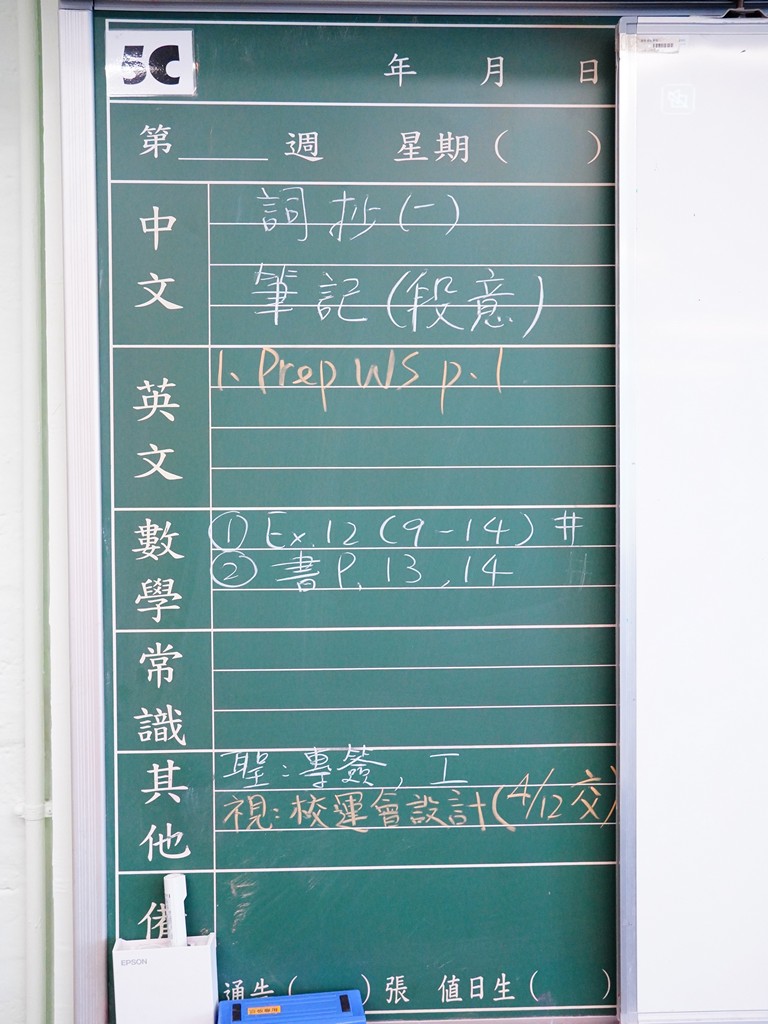 5C
年 月 日
第____週 星期( )
中文
詞抄(一)
筆記(段意)
英文
1. Prep WS p.1
數學
① Ex.12 (9-14) #
② 書P.13,14 #
常識
其他
聖:專簽,工
視:校運會設計(4/12交)
備
EPSON
通告( )張 值日生( )